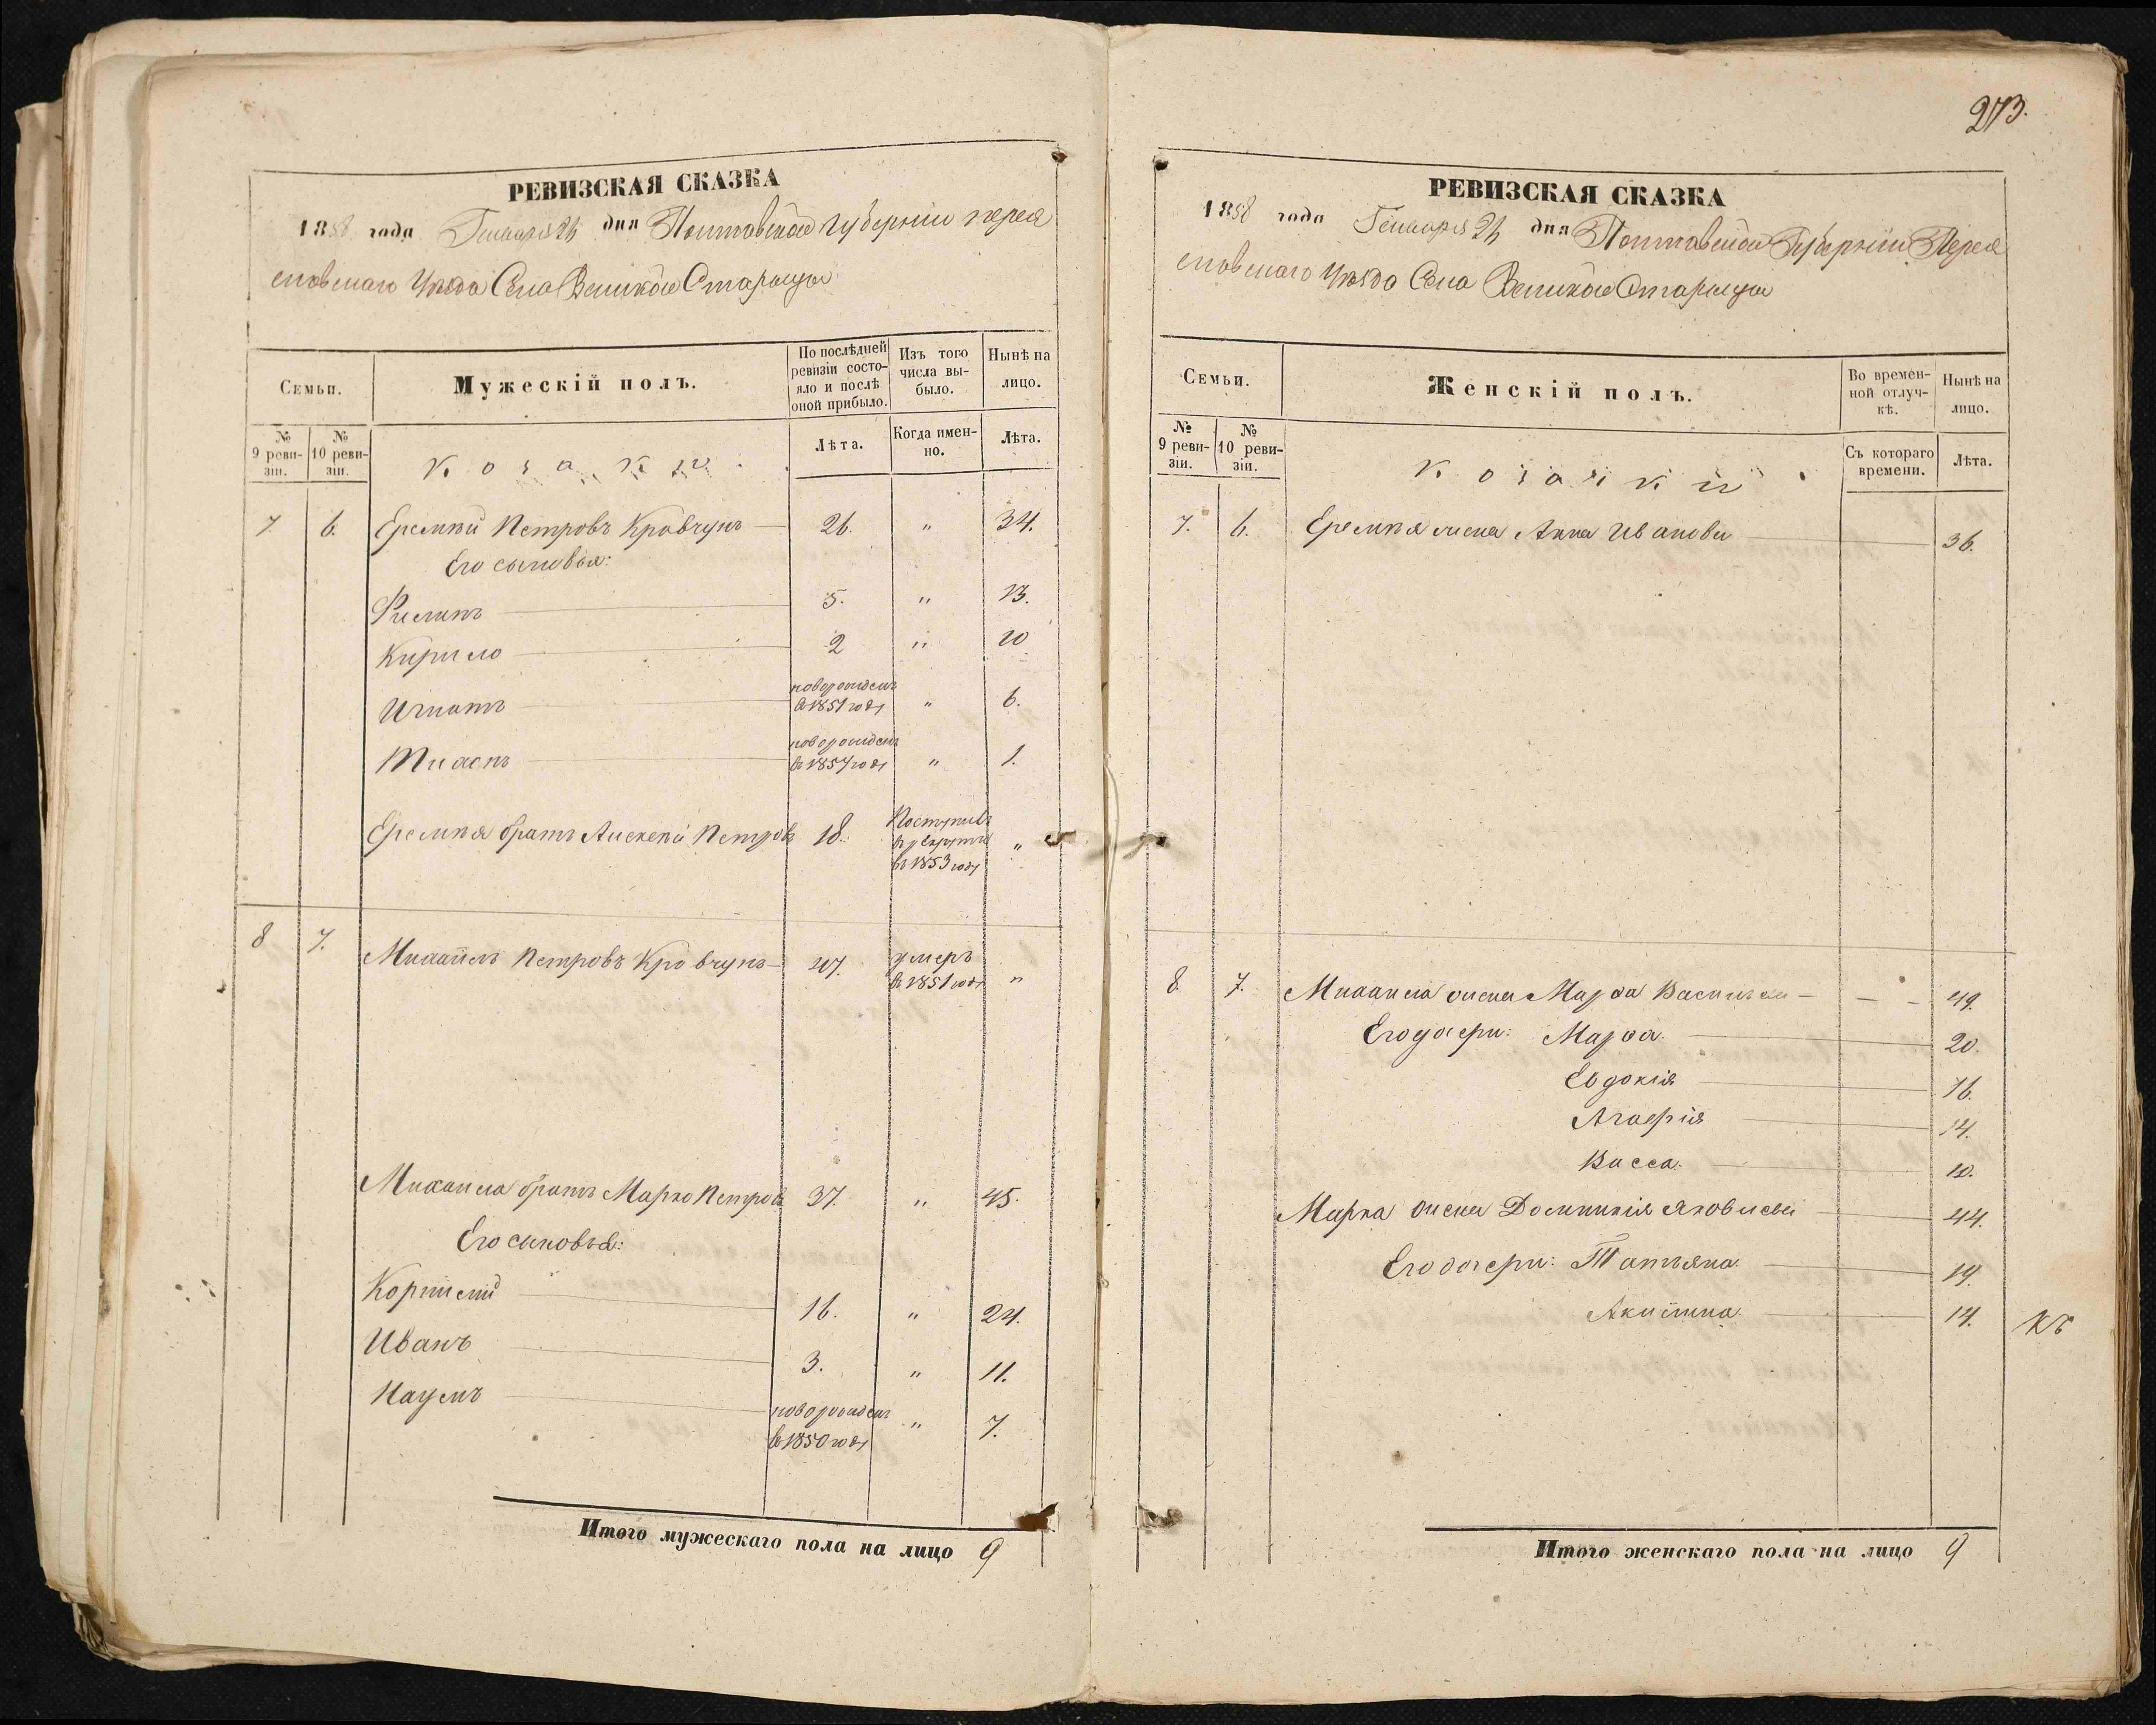 273.
РЕВИЗСКАЯ СКАЗКА
1858 года Генваря 26 дня Полтавской губерніи Перея
славскаго Уѣзда Села Великой Старицы
Семьи.
Мужескій полъ.
По послѣдней ревизіи состояло и послѣ оной прибыло.
Изъ того числа выбыло.
Нынѣ на лицо.
№ 9 ревизіи.
№ 10 ревизіи.
Козаки.
Лѣта.
Когда именно.
Лѣта.
7. 6. Еремѣй Петровъ Кравчунъ 26. " 34.
Его сыновья:
Филипъ 5. " 13.
Кирило 2 " 10
Игнатъ новорожденъ в 1851 году " 6.
новорожденъ в 1857 году " 1.
Еремѣя братъ Алексѣй Петровъ 18. Поступилъ в рекруты въ 1853 году "
8 7. Михаилъ Петровъ Кровчунъ 47. умеръ в 1851 году "
Михаила братъ Марко Петровъ 37. " 45.
Его сыновья:
Корнилій 16. " 24.
Иванъ 3. " 11.
Наумъ новорожденъ в 1850 году " 7.
Итого мужескаго пола на лицо 9
РЕВИЗСКАЯ СКАЗКА
1858 года Генваря 26 дня Полтавской Губерніи Перея
славскаго Уѣзда Села Великой Старицы
Семьи.
Женскій полъ.
Во временной отлучкѣ.
Нынѣ на лицо.
№ 9 ревизіи.
№ 10 ревизіи.
Козачки.
Съ котораго времени.
Лѣта.
7. 6. Еремѣя жена Анна Иванова 36.
8. 7. Михаила жена Марфа Васильева 49.
Его дочери: Марфа. 20.
Евдокія 16.
Агафія 14.
Васса. 10.
Марка жена Домникія Яковлева 44.
Его дочери: Татьяна. 19.
Акилина. 14.
Итого женскаго пола на лицо 9